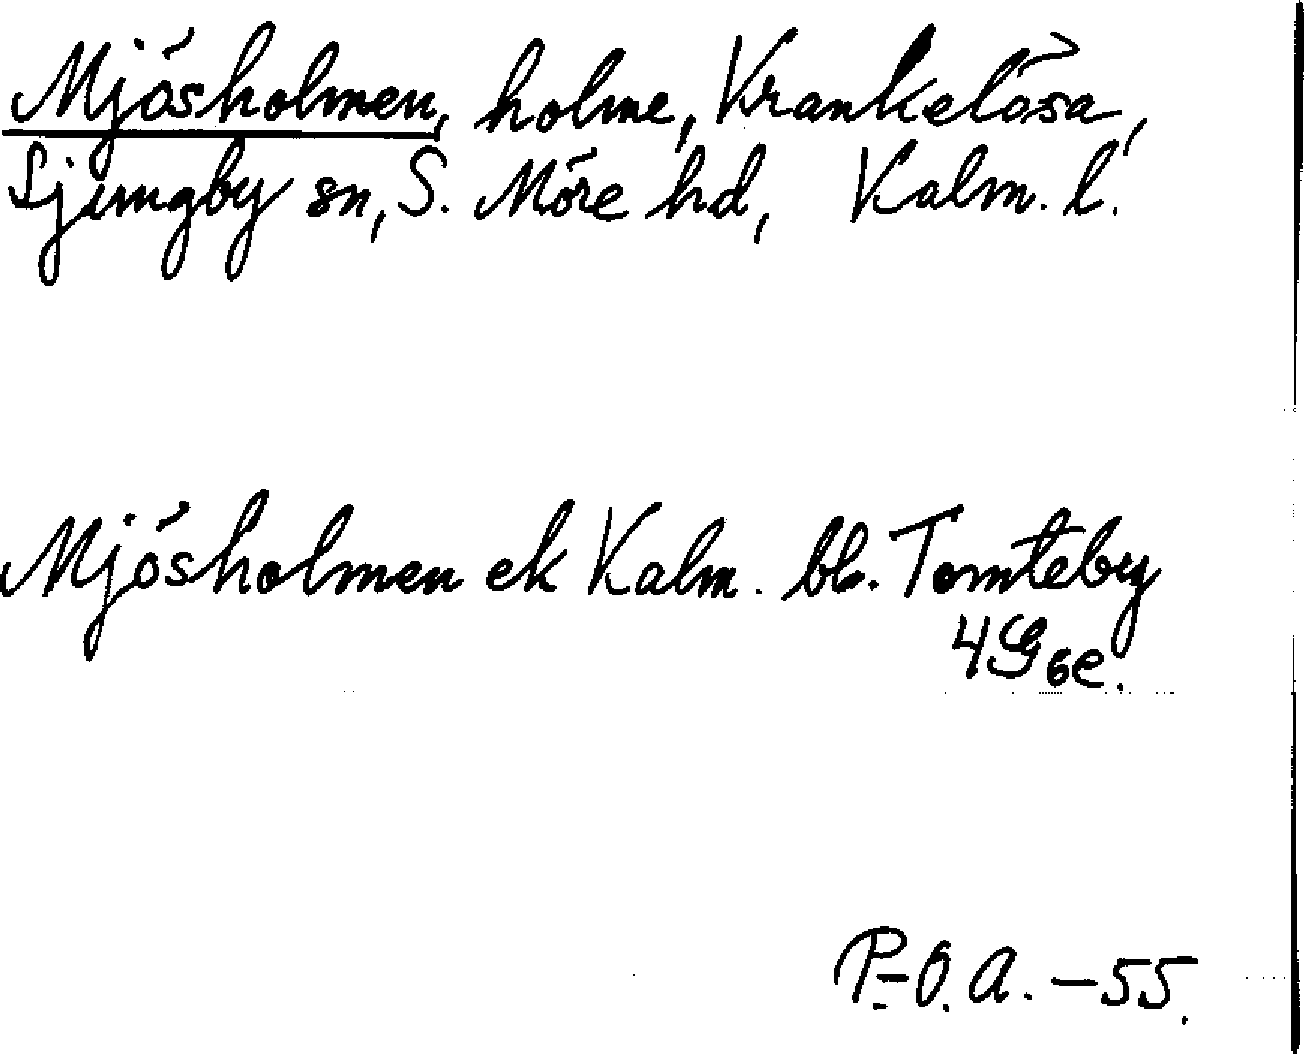 Mjösholmen, holme, Krankelösa,
Ljungby sn, S. Möre hd, Kalm. l.
Mjösholmen ek Kalm. bl. Tomteby
4G6e.
P-O.A. -55.